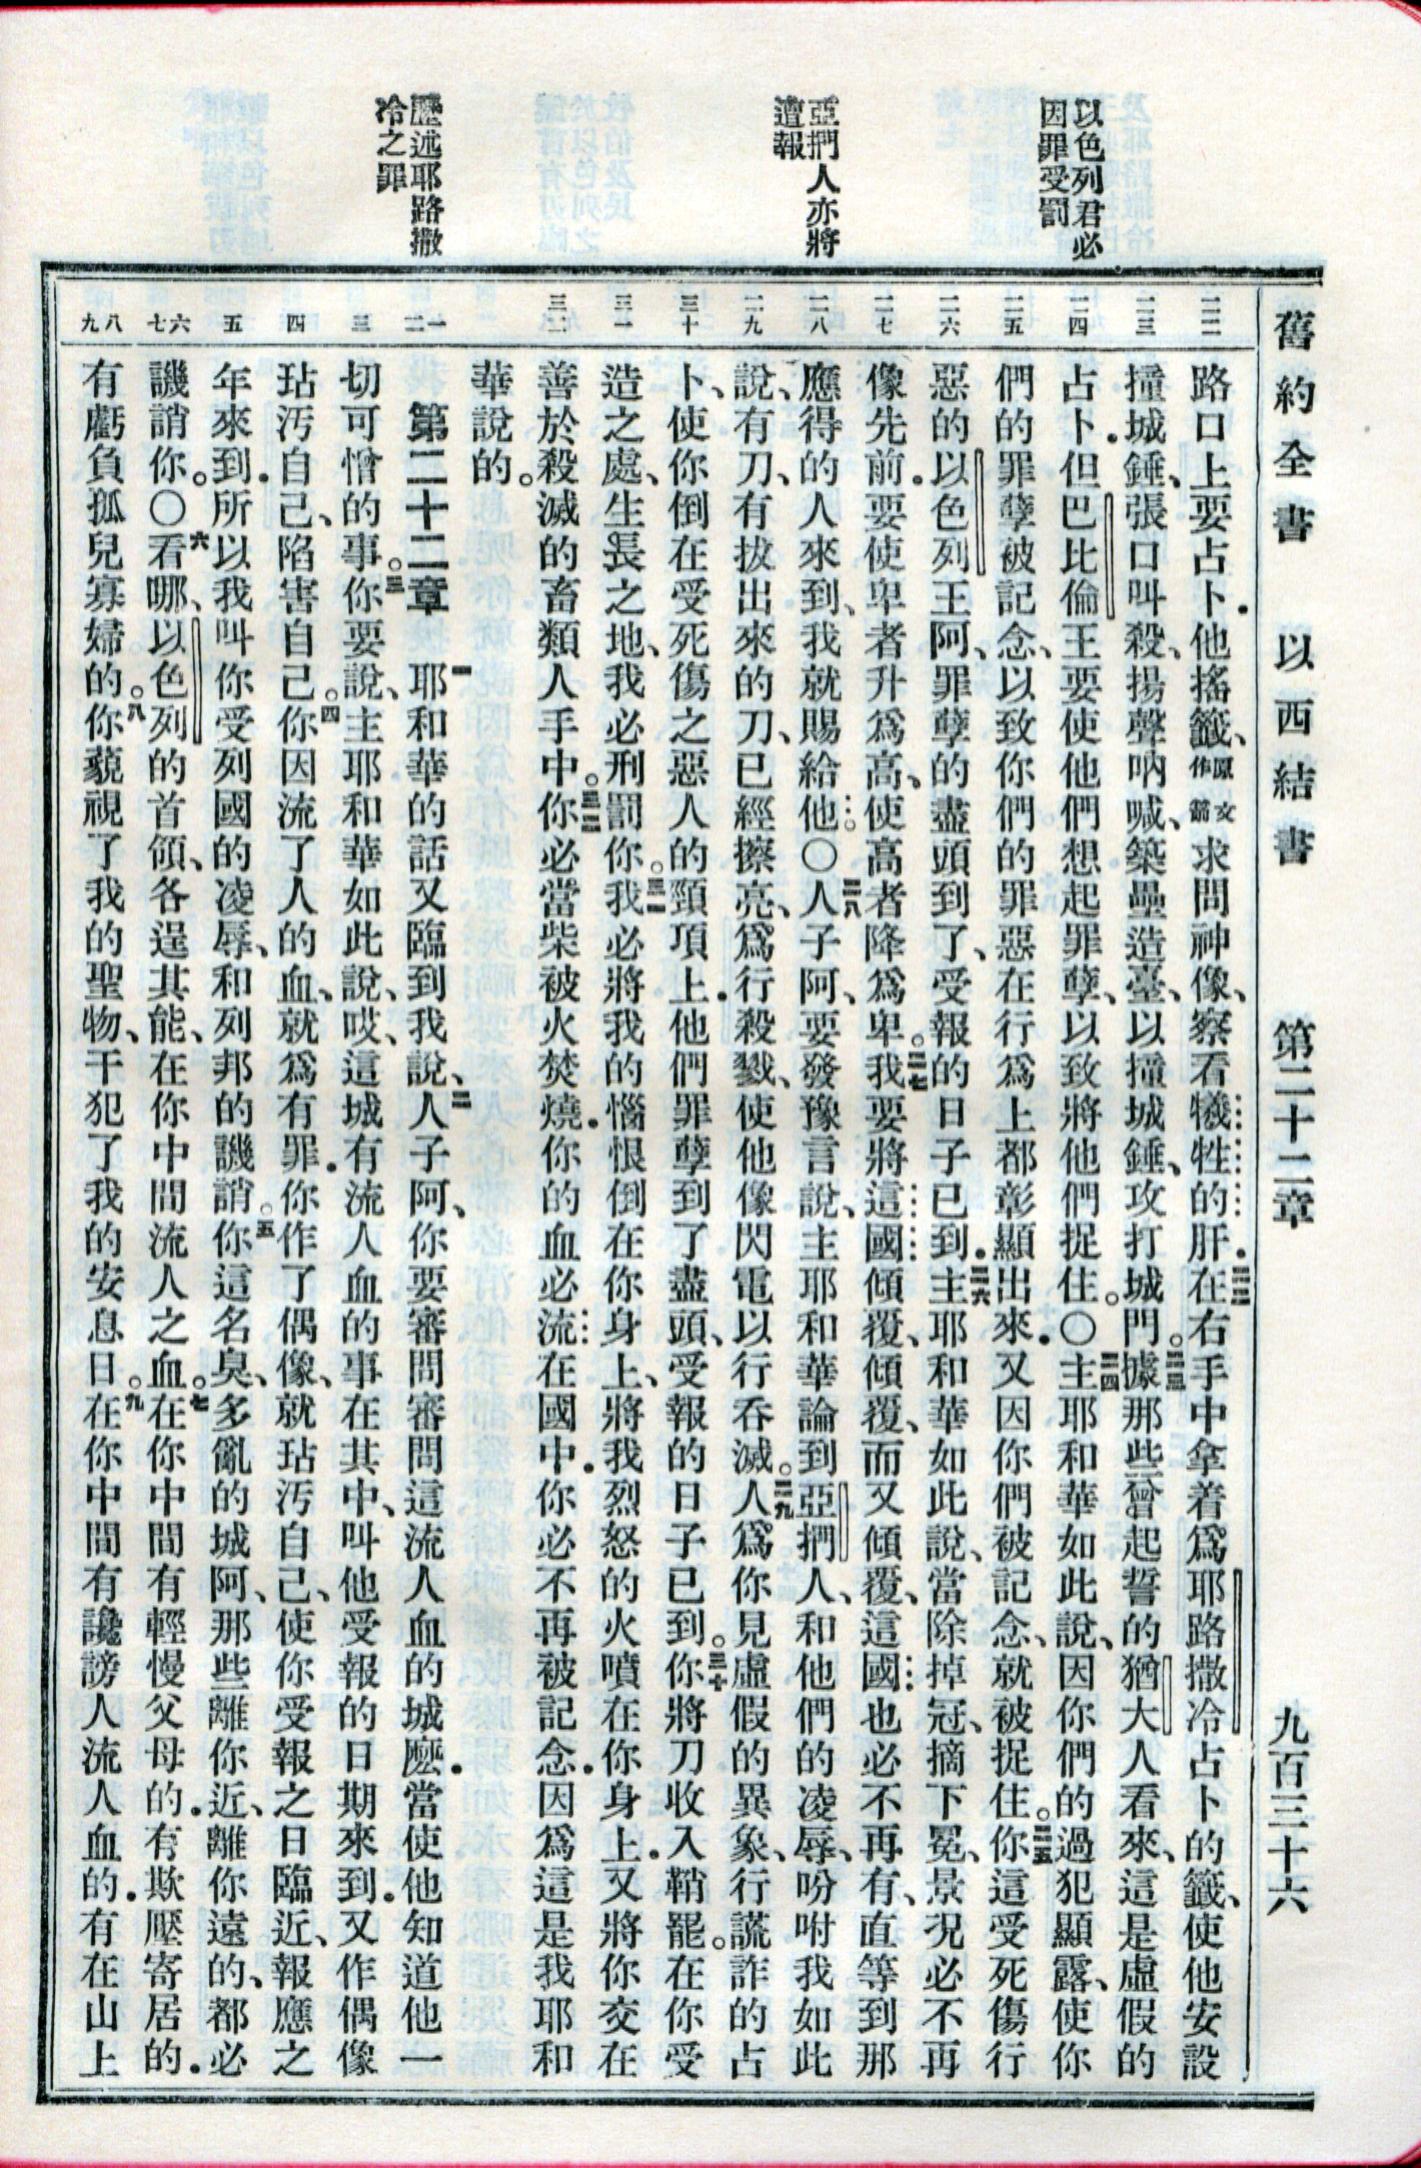 舊約全書 以西結書 第二十二章 九百三十六
以色列君必
因罪受罰
亞捫人亦將
遭報
歷述耶路撒
冷之罪
二二 二三 二四 二五 二六 二七 二八 二九 三十 三一 三二 一二 三 四 五 六七 八九
路口上要占卜．他搖籤、原文作箭求問神像、察看犧牲的肝．二二在右手中拿着爲耶路撒冷占卜的籤、使他安設
撞城錘、張口叫殺、揚聲吶喊、築壘造臺、以撞城錘、攻打城門。二三據那些曾起誓的猶大人看來、這是虛假的
占卜．但巴比倫王要使他們想起罪孽、以致將他們捉住。〇二四主耶和華如此說、因你們的過犯顯露、使你
們的罪孽被記念、以致你們的罪惡在行爲上都彰顯出來．又因你們被記念、就被捉住。二五你這受死傷行
惡的以色列王阿、罪孽的盡頭到了、受報的日子已到．二六主耶和華如此說、當除掉冠、摘下冕、景況必不再
像先前．要使卑者升爲高、使高者降爲卑。二七我要將這國傾覆、傾覆、而又傾覆、這國也必不再有、直等到那
應得的人來到、我就賜給他。〇二八人子阿、要發豫言說、主耶和華論到亞捫人、和他們的凌辱、吩咐我如此
說、有刀、有拔出來的刀、已經擦亮、爲行殺戮、使他像閃電以行吞滅。二九人爲你見虛假的異象、行謊詐的占
卜、使你倒在受死傷之惡人的頸項上．他們罪孽到了盡頭、受報的日子已到。三十你將刀收入鞘罷。在你受
造之處、生長之地、我必刑罰你。三一我必將我的惱恨倒在你身上、將我烈怒的火噴在你身上．又將你交在
善於殺滅的畜類人手中。三二你必當柴被火焚燒．你的血必流在國中．你必不再被記念．因爲這是我耶和
華說的。
第二十二章 一耶和華的話又臨到我說、二人子阿、你要審問審問這流人血的城麼．當使他知道他一
切可憎的事。三你要說、主耶和華如此說、哎、這城有流人血的事在其中、叫他受報的日期來到．又作偶像
玷汚自己、陷害自己。四你因流了人的血、就爲有罪．你作了偶像、就玷汚自己、使你受報之日臨近、報應之
年來到．所以我叫你受列國的凌辱、和列邦的譏誚。五你這名臭、多亂的城阿、那些離你近、離你遠的、都必
譏誚你。〇六看哪、以色列的首領、各逞其能、在你中間流人之血。七在你中間有輕慢父母的．有欺壓寄居的．
有虧負孤兒寡婦的。八你藐視了我的聖物、干犯了我的安息日。九在你中間有讒謗人流人血的．有在山上